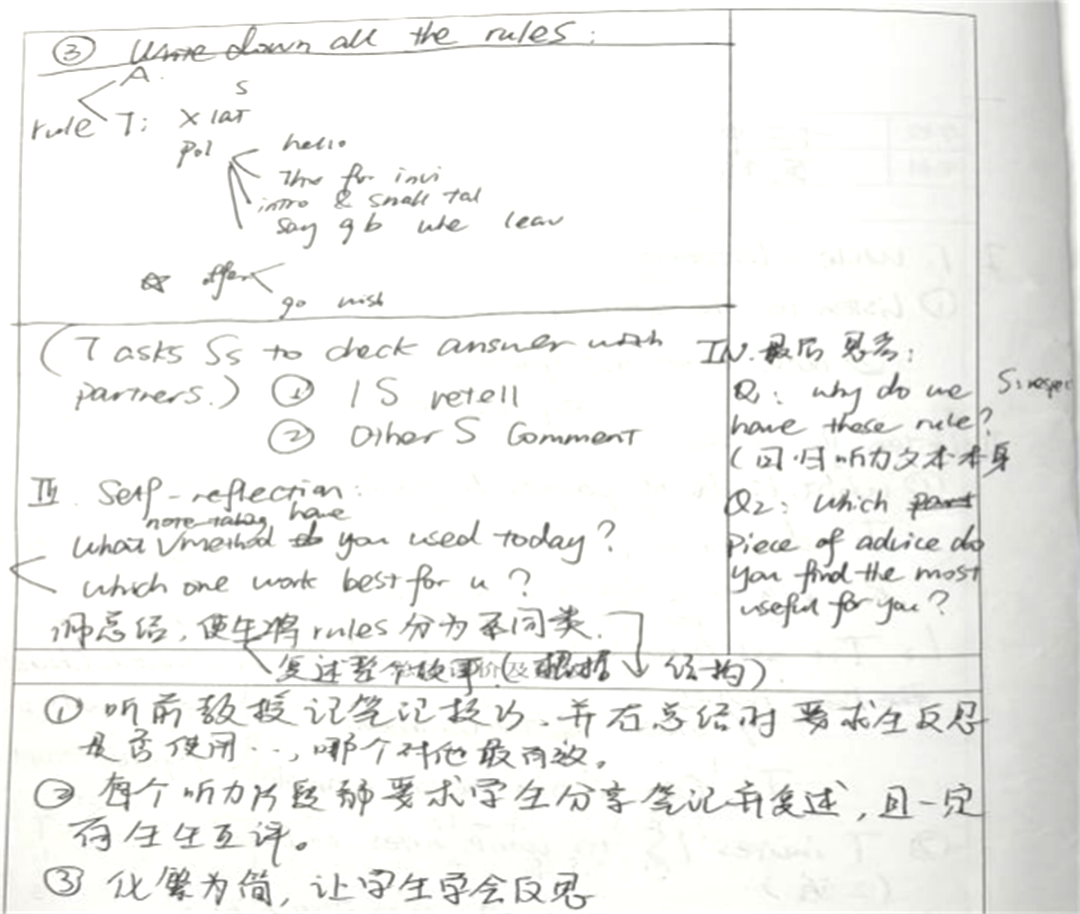 ③ Write down all the rules:
A.
rule T: X lat s
pol hello
Thx for invi
intro & small tal
say gb whe leav
☆ offer
go wish
(Tasks Ss to check answer with
partners.) ① 1 S retell
② Other S Comment
III. Self-reflection:
note-taking have
What √method do you used today?
which one work best for u?
师总结,使生将rules分为不同类.
复述整个故事(根据↓结构)
IV. 最后思考:
Q1: why do we
have these rule?
S: respe
(回归听力文本本身
Q2: which part
piece of advice do
you find the most
useful for you?
① 听前教授记笔记技巧、并在总结时要求生反思
是否使用…,哪个对他最有效。
② 每个听力片段都要求学生分享笔记并复述,且一定
有生生互评。
③ 化繁为简,让学生学会反思